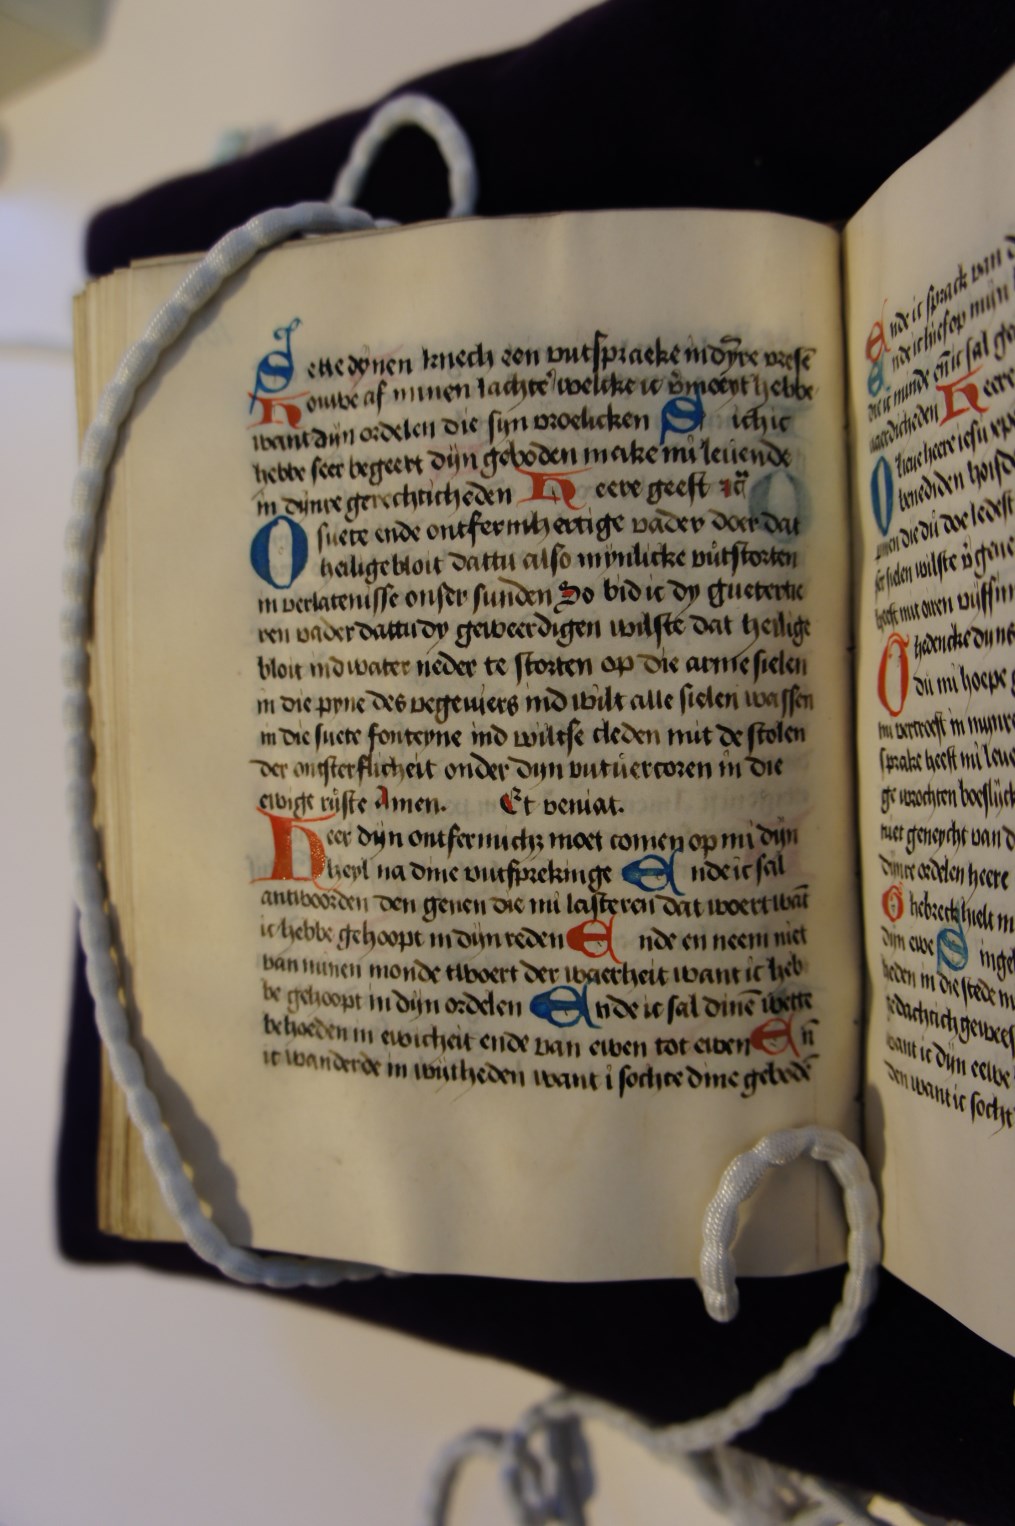 Sette dynen knech een vutspraeke in dyre vresē
Houwe af minen lachter welcke ic v̄moeyt hebbe
want dijn ordelen die sijn vroelicken Sich ic
hebbe seer begeert dijn geboden make mi leuende
in dijnre gerechticheden Heere geest
O suete ende ontfermhertige vader doer dat
heilige bloit dattu also mynlicke vůtstorten
in verlatenisse onser sunden So bid ic dy gueterte
ren vader dattu dy geweerdigen wilste dat heilige
bloit ind water neder te storten op die arme sielen
in die pyne des vegeuiers ind wilt alle sielen wassen
in die suete fonteyne ind wiltse cleden mit de stolen
der onsterflicheit onder dyn vutuercoren in die
ewige ruste Amen. Et veniat.
Heer dijn ontfermich; moet comen op mi dijn
heyl na dine vutsprekinge Ende ic sal
antwoorden den genen die mi lasteren dat woert wāt
ic hebbe gehoopt in dijn reden Ende en neem niet
van minen monde twoert der waerheit want ic heb
be gehoopt in dijn ordelen Ende ic sal dinē wette
behoeden in ewicheit ende van ewen tot ewen En̄
ic wanderde in wijtheden want i sochte dine gebodē
Ende ic sprack van
nde ic hief op mijn
die ic minde en̄ ic sal
Heere
O lieue heere iesu
benediden
O gedencke
du mi hoepe
mi vertroest in mijnre
sprake heeft mi
ge wrochten
niet geneycht van
dijnre ordelen heere
O
dijn ewe Singe
heden in die stede
gedachtich
want ic dijn
den want ic socht